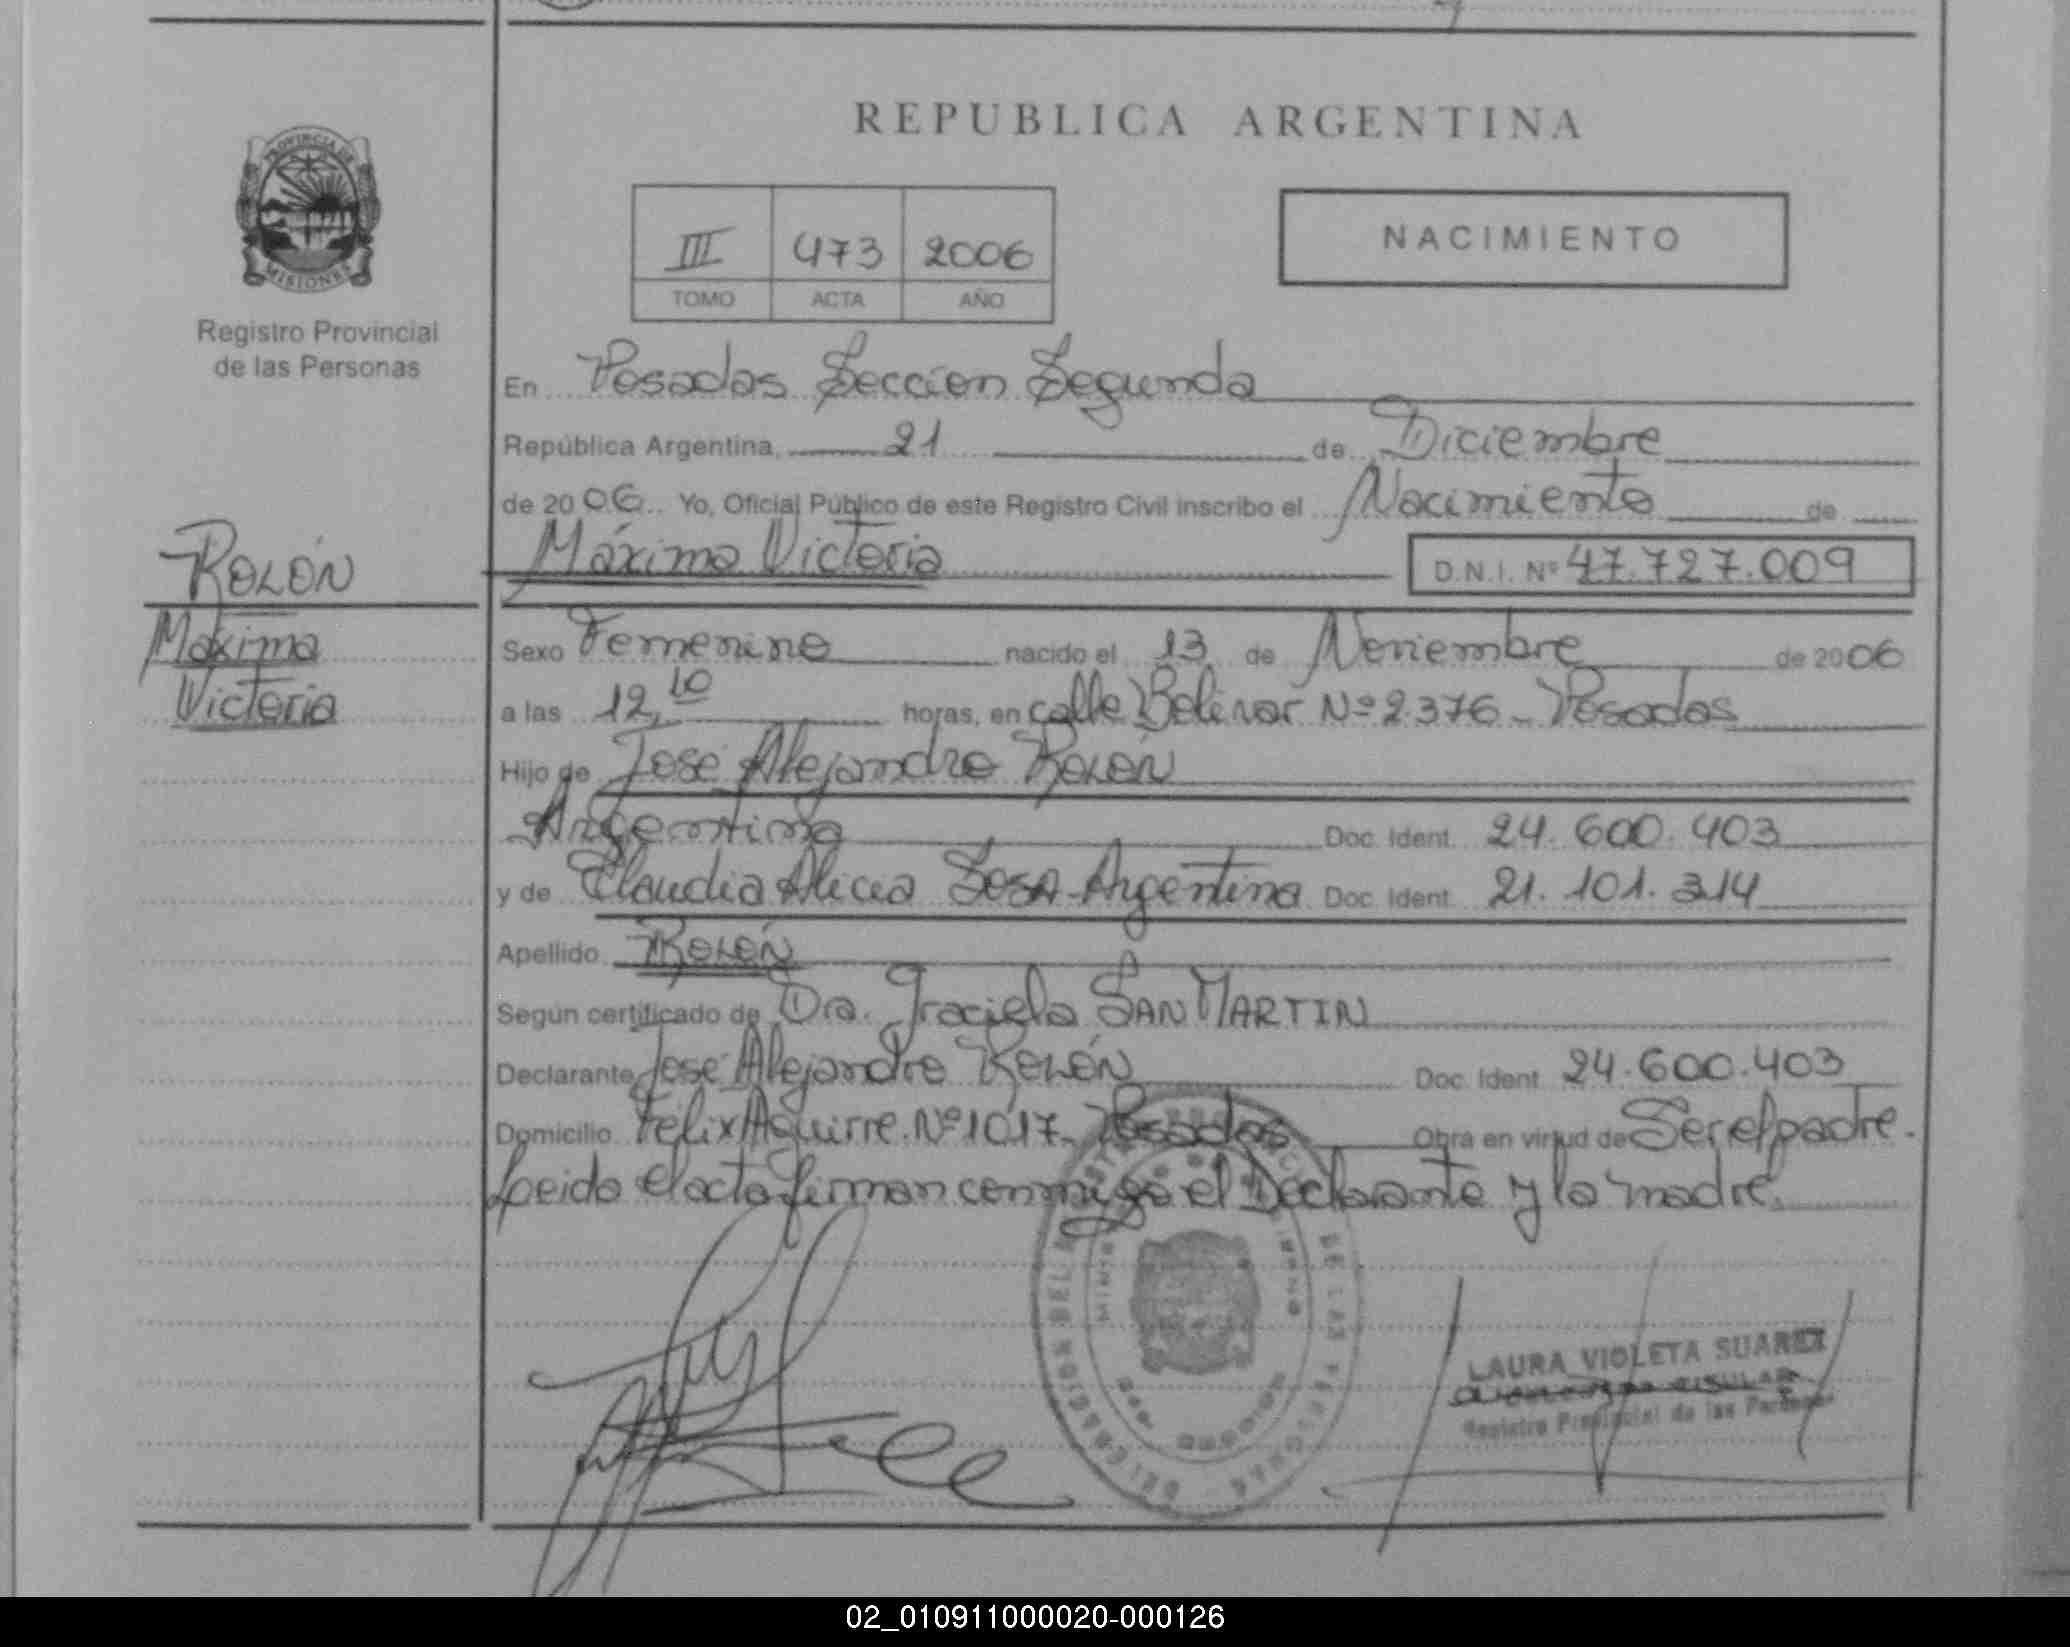 REPUBLICA ARGENTINA
PROVINCIA DE MISIONES
Registro Provincial
de las Personas
III 473 2006
TOMO ACTA AÑO
NACIMIENTO
En Posadas Sección Segunda
República Argentina, 21 de Diciembre
de 2006. Yo, Oficial Público de este Registro Civil inscribo el Nacimiento de
Máxima Victoria D.N.I. Nº 47.727.009
ROLÓN
Máxima
Victoria
Sexo Femenino nacido el 13 de Noviembre de 2006
a las 12,10 horas, en calle Bolivar Nº 2.376 - Posadas
Hijo de José Alejandro ROLÓN
Argentina Doc. Ident. 24.600.403
y de Claudia Alicia SOSA - Argentina Doc. Ident. 21.101.314
Apellido ROLÓN
Según certificado de Dra. Graciela SAN MARTIN
Declarante José Alejandro ROLÓN Doc. Ident. 24.600.403
Domicilio Félix Aguirre Nº 1017 - Posadas Obra en virtud de Ser el padre.
Leida el acta firman conmigo el Declarante y la madre.
LAURA VIOLETA SUAREZ
Registro Provincial de las Personas
02_010911000020-000126